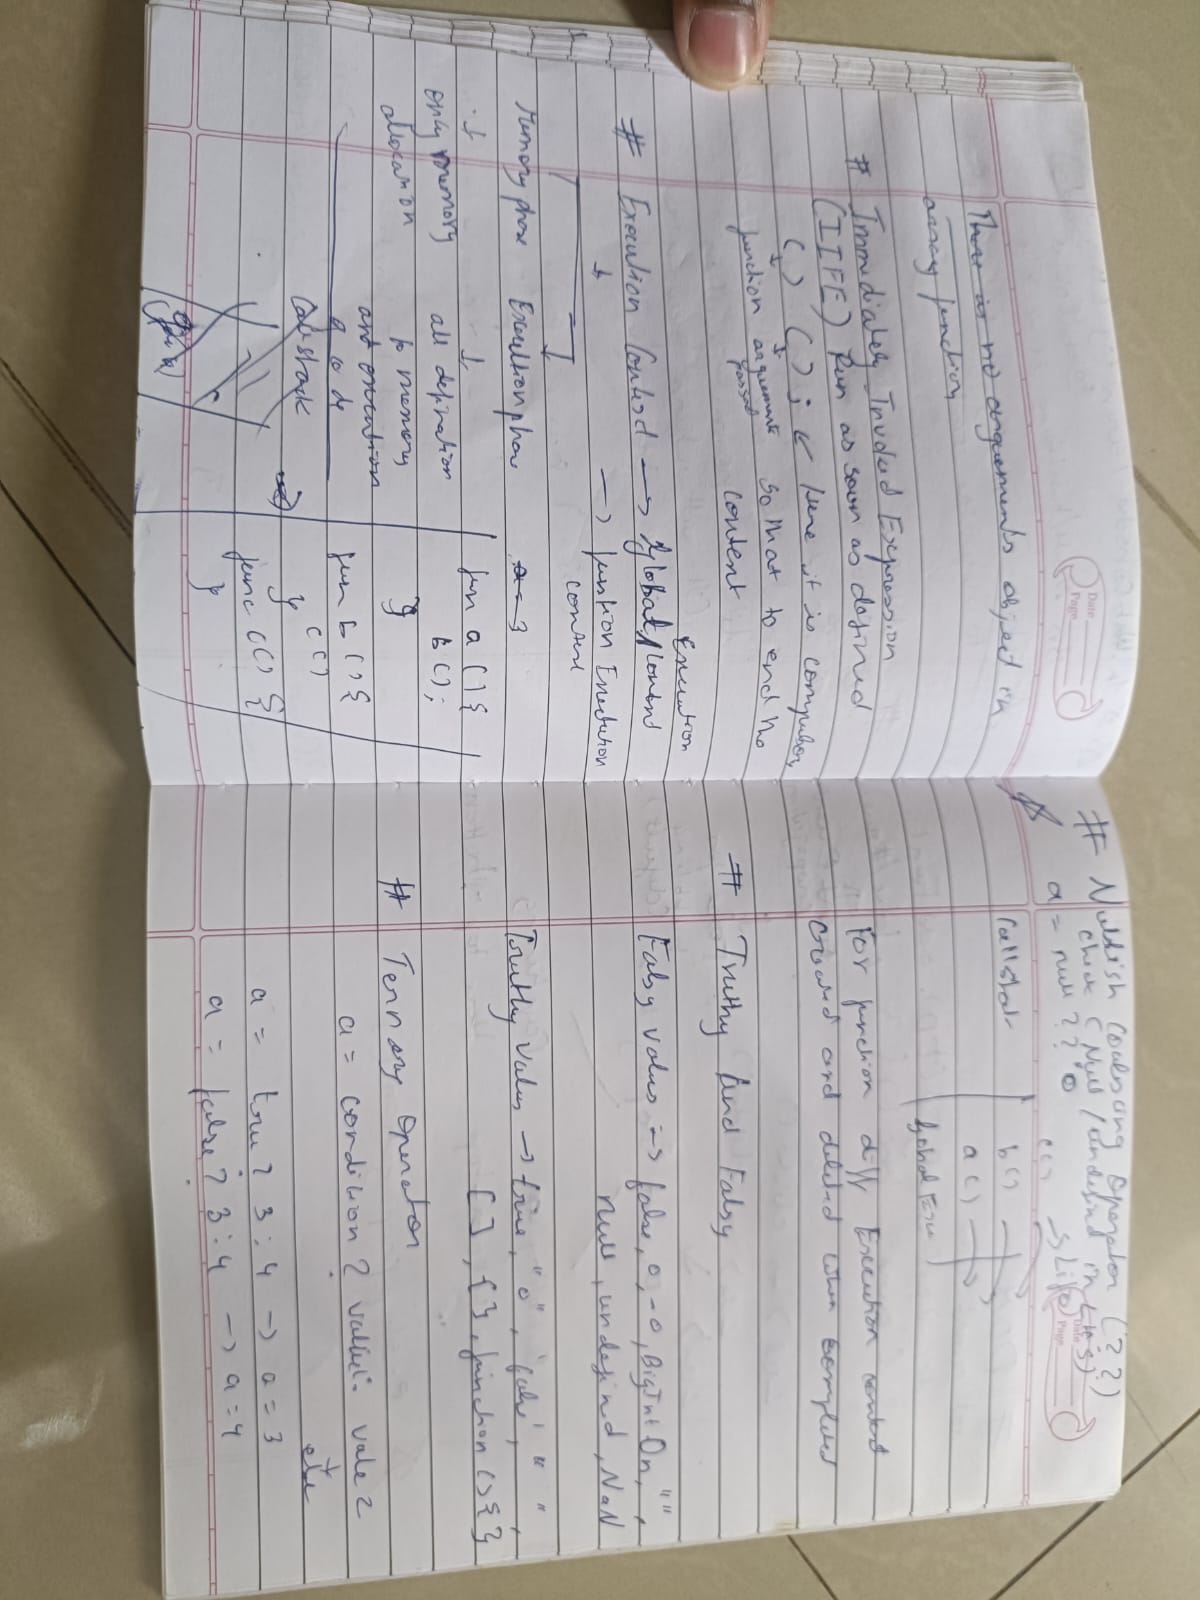 Date
Page
There is no arguments object in
array function
# Immediately Invoked Expression
(IIFE) Run as soon as defined
( ) ( ) ; ← here it is compulsory
function arguments so that to end the
passed content
Execution
# Execution Context → global
→ function Execution
context
Memory phase Execution phase
only memory all defination
allocation to memory
and execution
Callstack
fun a () {
b ();
}
fun b () {
c ()
}
func c() {
}
# Nullish Coalescing Operator (??)
check (Null / undefined in LHS)
a = null ?? 0
Date
Page
Callstack
c() → LIFO
b()
a()
global
For function diff Execution context
created and deleted when completed
# Truthy And Falsy
Falsy values → false, 0, -0, BigInt 0n, "",
null, undefind, NaN
Truthy Values → true, "0", 'false', " ",
[ ], { }, function () { }
# Ternary Operator
a = condition ? value1 : value 2
↓
else
a = true ? 3 : 4 → a = 3
a = false ? 3 : 4 → a = 4